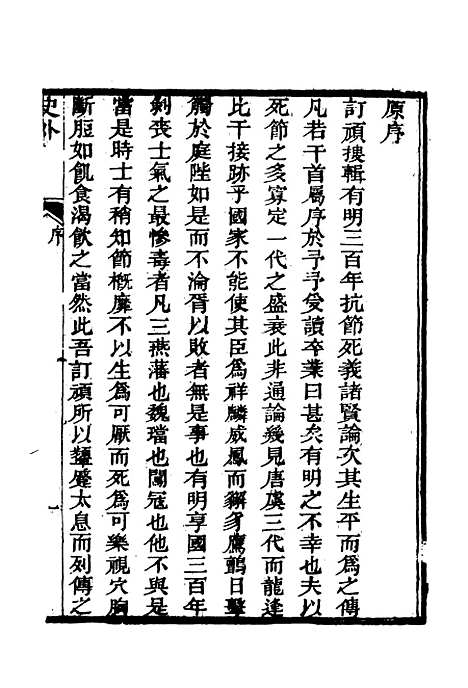 原序
訂頑摟輯有明三百年抗節死義諸賢論次其生平而爲之傳
凡若干首屬序於予予爰讀卒業曰甚矣有明之不幸也夫以
死節之多寡定一代之盛衰此非通論幾見唐虞三代而龍逢
比干接跡乎國家不能使其臣爲祥麟威鳳而獬豸鷹鸇日擊
觸於庭陛如是而不淪胥以敗者無是事也有明享國三百年
剝喪士氣之最慘毒者凡三燕藩也魏璫也闖冦也他不與是
當是時士有稍知節槪靡不以生爲可厭而死爲可樂視穴胸
斷脰如飢食渴飮之當然此吾訂頑所以顰蹙太息而列傳之
史外
序
一